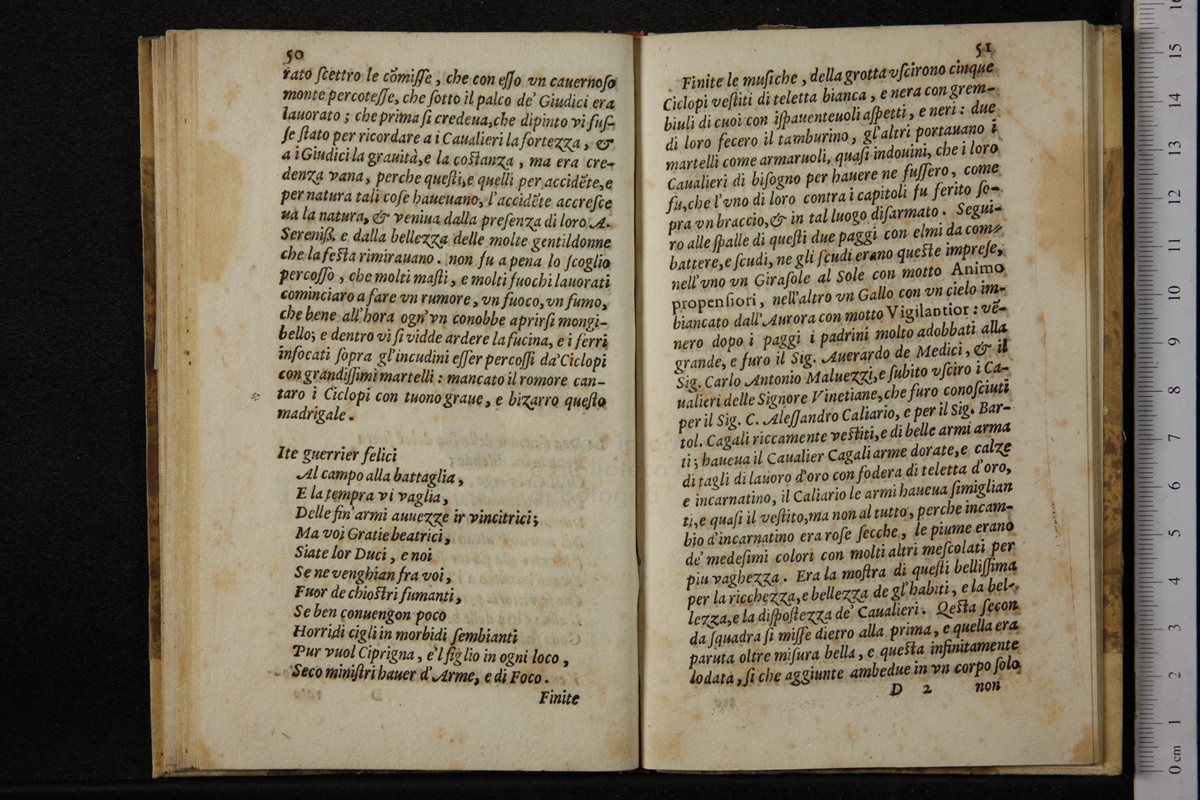 50
rato ſcettro le cõmiſſe, che con eſſo vn cauernoſo
monte percoteſſe, che ſotto il palco de' Giudici era
lauorato; che prima ſi credeua,che dipinto vi fuſ-
ſe ſtato per ricordare a i Caualieri la fortezza, &
a i Giudici la grauità,e la coſtanza, ma era cre-
denza vana, perche queſti,e quelli per accidẽte,e
per natura tali coſe haueuano, l'accidẽte accreſce
ua la natura, & veniua dalla preſenza di loro A.
Sereniß. e dalla bellezza delle molte gentildonne
che la feſta rimirauano. non fu a pena lo ſcoglio
percoſſo, che molti maſti, e molti fuochi lauorati
cominciaro a fare vn rumore, vn fuoco, vn fumo,
che bene all'hora ogn'vn conobbe aprirſi mongi-
bello; e dentro vi ſi vidde ardere la fucina, e i ferri
infocati ſopra gl'incudini eſſer percoſſi da' Ciclopi
con grandiſſimi martelli: mancato il romore can-
taro i Ciclopi con tuono graue, e bizarro queſto
madrigale.
Ite guerrier felici
Al campo alla battaglia,
E la tempra vi vaglia,
Delle fin'armi auuezze ir vincitrici;
Ma voi Gratie beatrici,
Siate lor Duci, e noi
Se ne venghian fra voi,
Fuor de chioſtri fumanti,
Se ben conuengon poco
Horridi cigli in morbidi ſembianti
Pur vuol Ciprigna, e'l figlio in ogni loco,
Seco miniſtri hauer d'Arme, e di Foco.
Finite
51
Finite le muſiche, della grotta vſcirono cinque
Ciclopi veſtiti di teletta bianca, e nera con grem-
biuli di cuoi con iſpauenteuoli aſpetti, e neri: due
di loro fecero il tamburino, gl'altri portauano i
martelli come armaruoli, quaſi indouini, che i loro
Caualieri di biſogno per hauere ne fuſſero, come
fu,che l'vno di loro contra i capitoli fu ferito ſo-
pra vn braccio,& in tal luogo diſarmato. Segui-
ro alle ſpalle di queſti due paggi con elmi da com-
battere,e ſcudi, ne gli ſcudi erano queſte impreſe,
nell'vno vn Giraſole al Sole con motto Animo
propenſiori, nell'altro vn Gallo con vn cielo im-
biancato dall'Aurora con motto Vigilantior: vẽ-
nero dopo i paggi i padrini molto adobbati alla
grande, e furo il Sig. Auerardo de Medici, & il
Sig. Carlo Antonio Maluezzi,e ſubito vſciro i Ca-
ualieri delle Signore Vinetiane,che furo conoſciuti
per il Sig. C. Aleſſandro Caliario, e per il Sig. Bar-
tol. Cagali riccamente veſtiti,e di belle armi arma
ti; haueua il Caualier Cagali arme dorate,e calze
di tagli di lauoro d'oro con fodera di teletta d'oro,
e incarnatino, il Caliario le armi haueua ſimiglian
ti,e quaſi il veſtito,ma non al tutto, perche incam-
bio d'incarnatino era roſe ſecche, le piume erano
de' medeſimi colori con molti altri meſcolati per
piu vaghezza. Era la moſtra di queſti belliſſima
per la ricchezza,e bellezza de gl'habiti, e la bel-
lezza,e la diſpoſtezza de' Caualieri. Qeſta ſecon
da ſquadra ſi miſſe dietro alla prima, e quella era
paruta oltre miſura bella, e queſta infinitamente
lodata, ſi che aggiunte ambedue in vn corpo ſolo
D 2 non